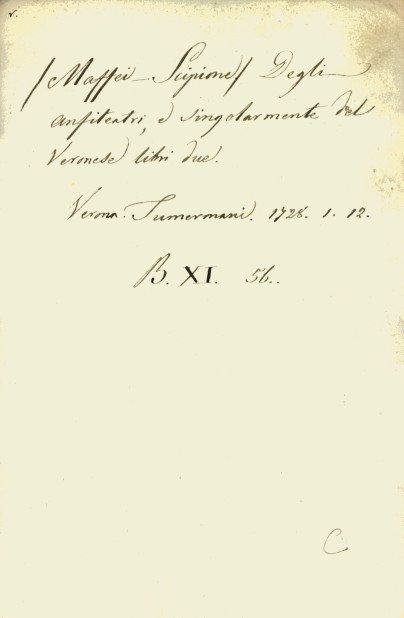 /Maffei Scipione/ Degli
anfiteatri, e singolarmente del
Veronese libri due.
Verona. Tumermani. 1728. 1. 12.
B. XI. 56..
C